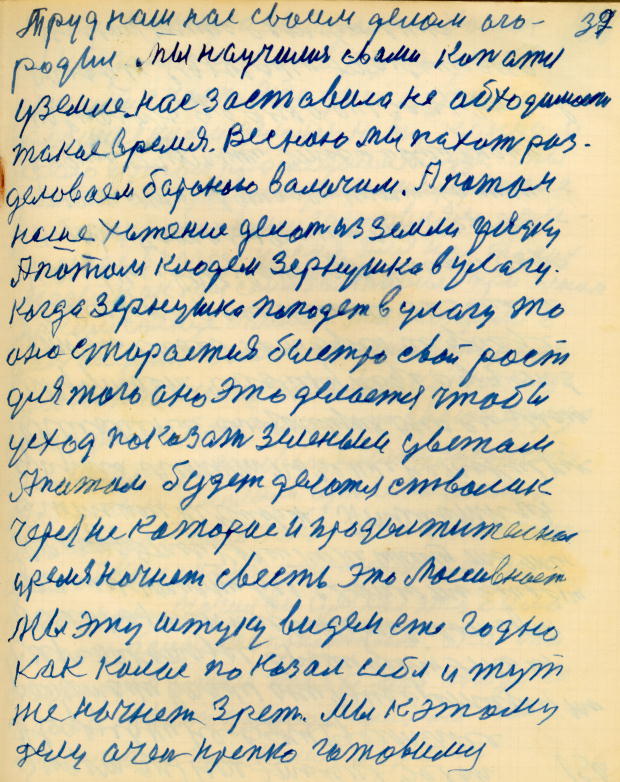 Труд наш нас своим делом ого- 37
родил. Мы научимя свами копати
уземле, нас заставила не абходимасти
такае время. Весною мы пахот раз-
деловаем бароною валочим. А потом
наше хытение делот из земли грядку
А потом кладем зернушка в улагу.
Когда зернушка пападет в улагу то
оно старается быстро свой рост
для того оно это делается чтобы
усход показат зеленым цветам
А патом будет делатся стволик
через не каторае и продылжителнае
время начнет свесть это
Мы эту штуку видем ежегодно
Как колас показал себя и тут
же начнет зрет. Мы к этому
делу очен крепко готовимся